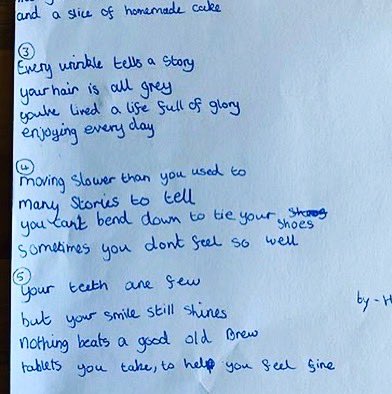 and a slice of homemade cake
③
Every wrinkle tells a story
your hair is all grey
you've lived a life full of glory
enjoying every day
④
moving slower than you used to
many stories to tell
you cant bend down to tie your
shoes
sometimes you dont feel so well
⑤
your teeth are few
but your smile still shines
by - H
nothing beats a good old Brew
tablets you take, to help you feel fine